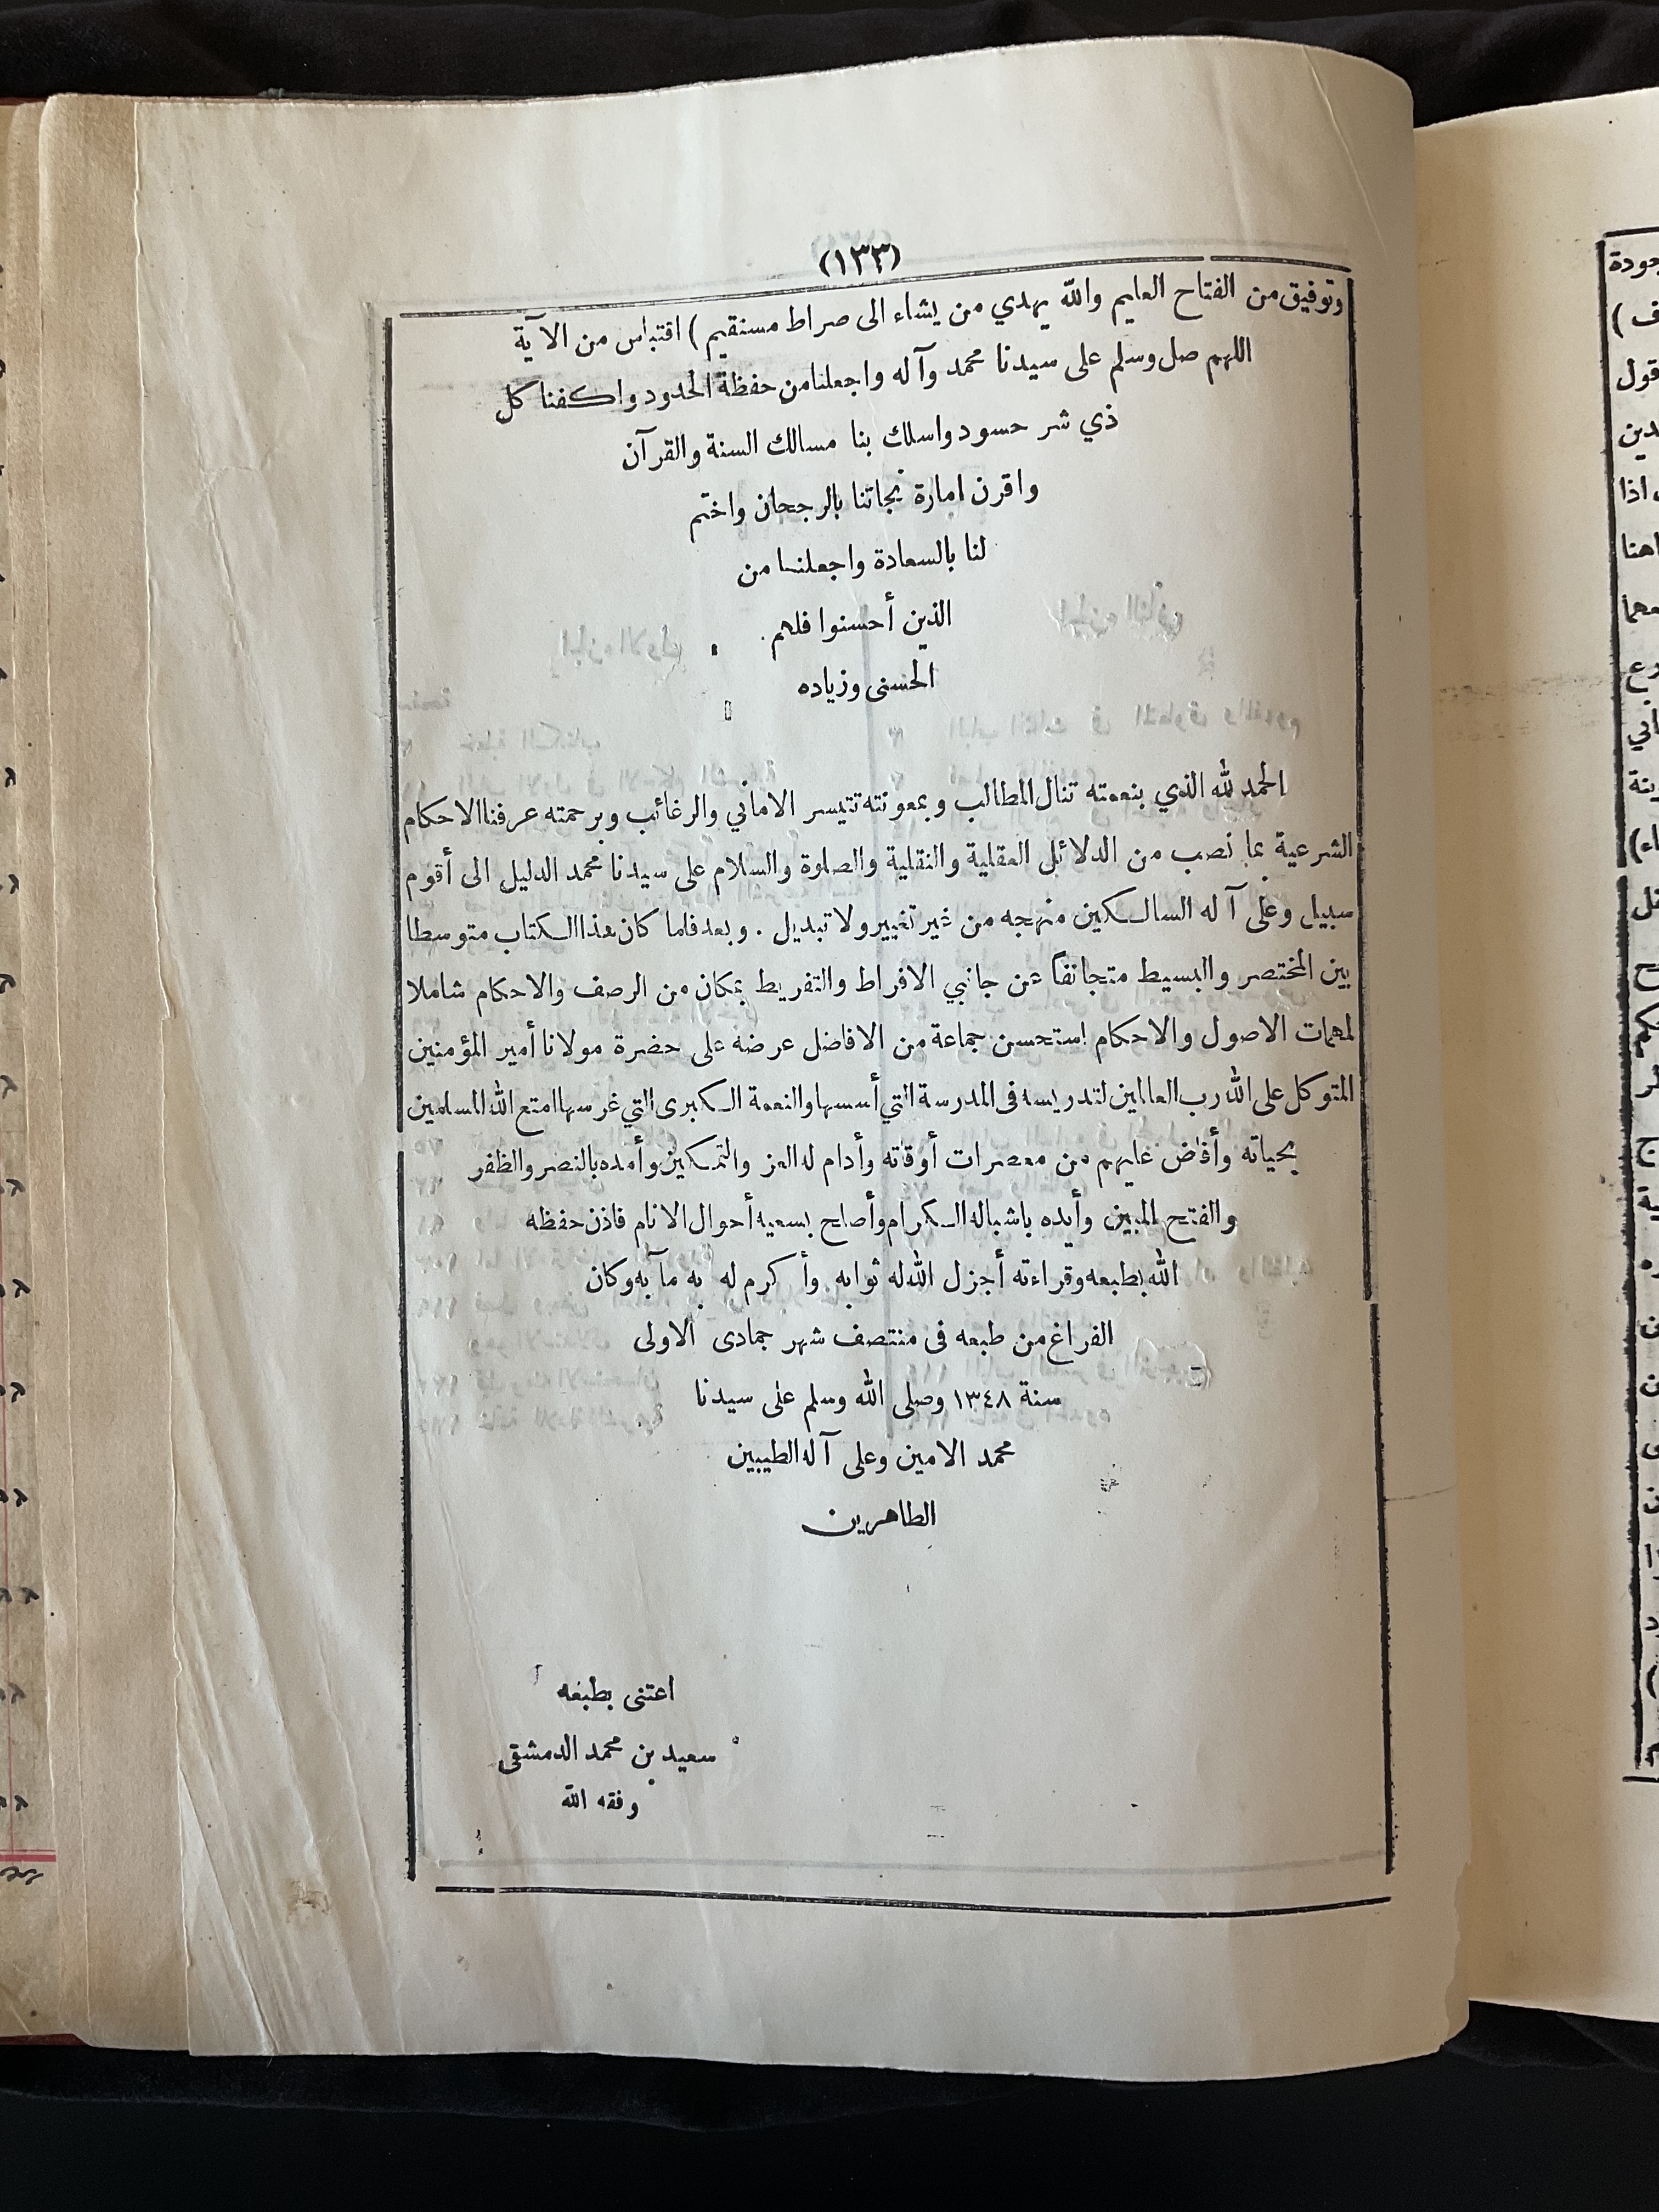 (١٣٣)
وتوفيق من الفتاح العليم والله يهدي من يشاء الى صراط مستقيم ) اقتباس من الآية
اللهم صل وسلم على سيدنا محمد وآله واجعلنا من حفظة الحدود واكفنا كل
ذي شر حسود واسلك بنا مسالك السنة والقرآن
واقرن امارة نجاتنا بالرجحان واختم
لنا بالسعادة واجعلنا من
الذين أحسنوا فلهم
الحسنى وزياده
الحمد لله الذي بنعمته تنال المطالب وبمعونته تتيسر الاماني والرغائب وبرحمته عرفنا الاحكام
الشرعية بما نصب من الدلائل العقلية والنقلية والصلوة والسلام على سيدنا محمد الدليل الى أقوم
سبيل وعلى آله السالكين منهجه من غير تغيير ولا تبديل . وبعد فلما كان هذا الكتاب متوسطا
بين المختصر والبسيط متجانفا عن جانبي الافراط والتفريط بمكان من الرصف والاحكام شاملا
لمهمات الاصول والاحكام استحسن جماعة من الافاضل عرضه على حضرة مولانا أمير المؤمنين
المتوكل على الله رب العالمين لتدريسه فى المدرسة التي أسسها والنعمة الكبرى التي غرسها امتع الله المسلمين
بحياته وأفاض عليهم من معصرات أوقاته وأدام له العز والتمكين وأمده بالنصر والظفر
والفتح المبين وأيده باشباله الكرام وأصلح بسعيه أحوال الانام فاذن حفظه
الله بطبعه وقراءته أجزل الله له ثوابه وأكرم له به مآبه وكان
الفراغ من طبعه فى منتصف شهر جمادى الاولى
سنة ١٣٤٨ وصلى الله وسلم على سيدنا
محمد الامين وعلى آله الطيبين
الطاهرين
اعتنى بطبعه
سعيد بن محمد الدمشقى
وفقه الله